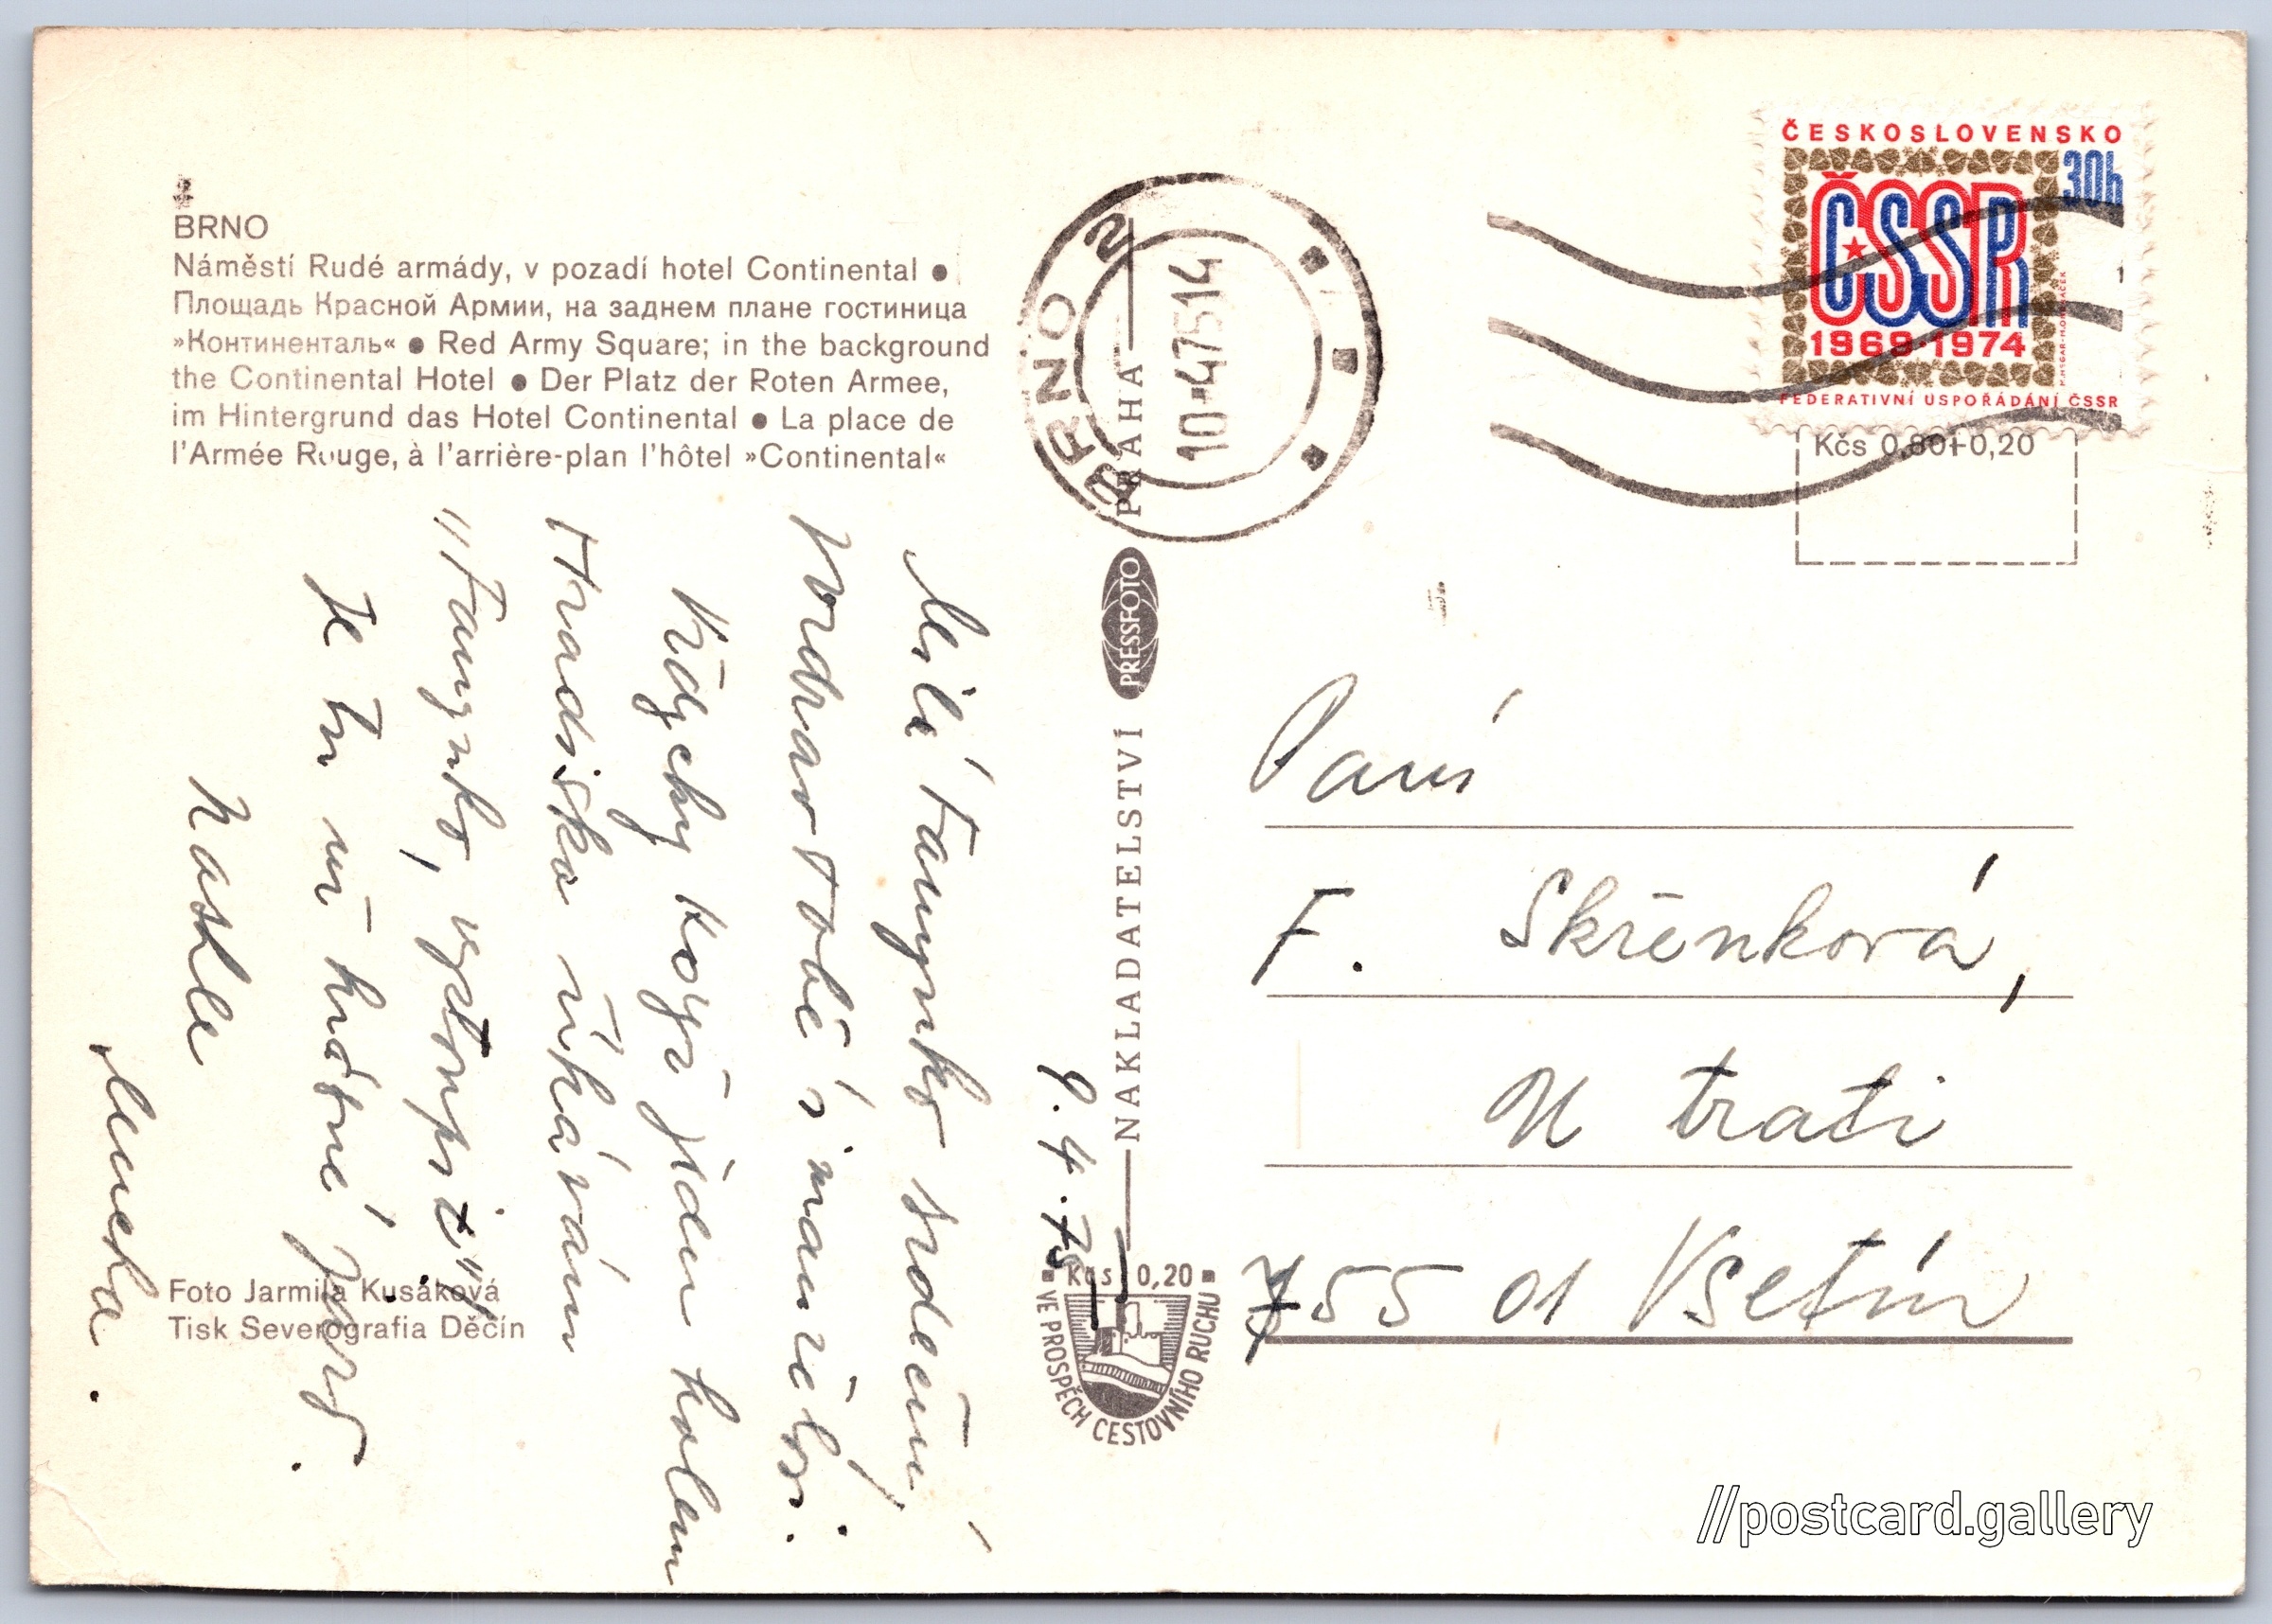 BRNO
Náměstí Rudé armády, v pozadí hotel Continental ●
Площадь Красной Армии, на заднем плане гостиница
»Континенталь« ● Red Army Square; in the background
the Continental Hotel ● Der Platz der Roten Armee,
im Hintergrund das Hotel Continental ● La place de
l'Armée Rouge, à l'arrière-plan l'hôtel »Continental«
9.4.75
Milá Fanynko, srdečně
pozdravuji Tobě i manželovi.
Vždycky když jedu kolem
Hradiska
"Fanynko, vystoupit!"
Je tu už krásné jaro.
Nashle
Foto Jarmila Kusáková
Tisk Severografia Děčín
NAKLADATELSTVÍ PRESSFOTO PRAHA
Kčs 0,20
VE PROSPĚCH CESTOVNÍHO RUCHU
BRNO 2
10.-4.75 14
ČESKOSLOVENSKO
30h
ČSSR
1969·1974
FEDERATIVNÍ USPOŘÁDÁNÍ ČSSR
Kčs 0,80+0,20
Paní
F. Skřenková,
U trati
755 01 Vsetín
//postcard.gallery